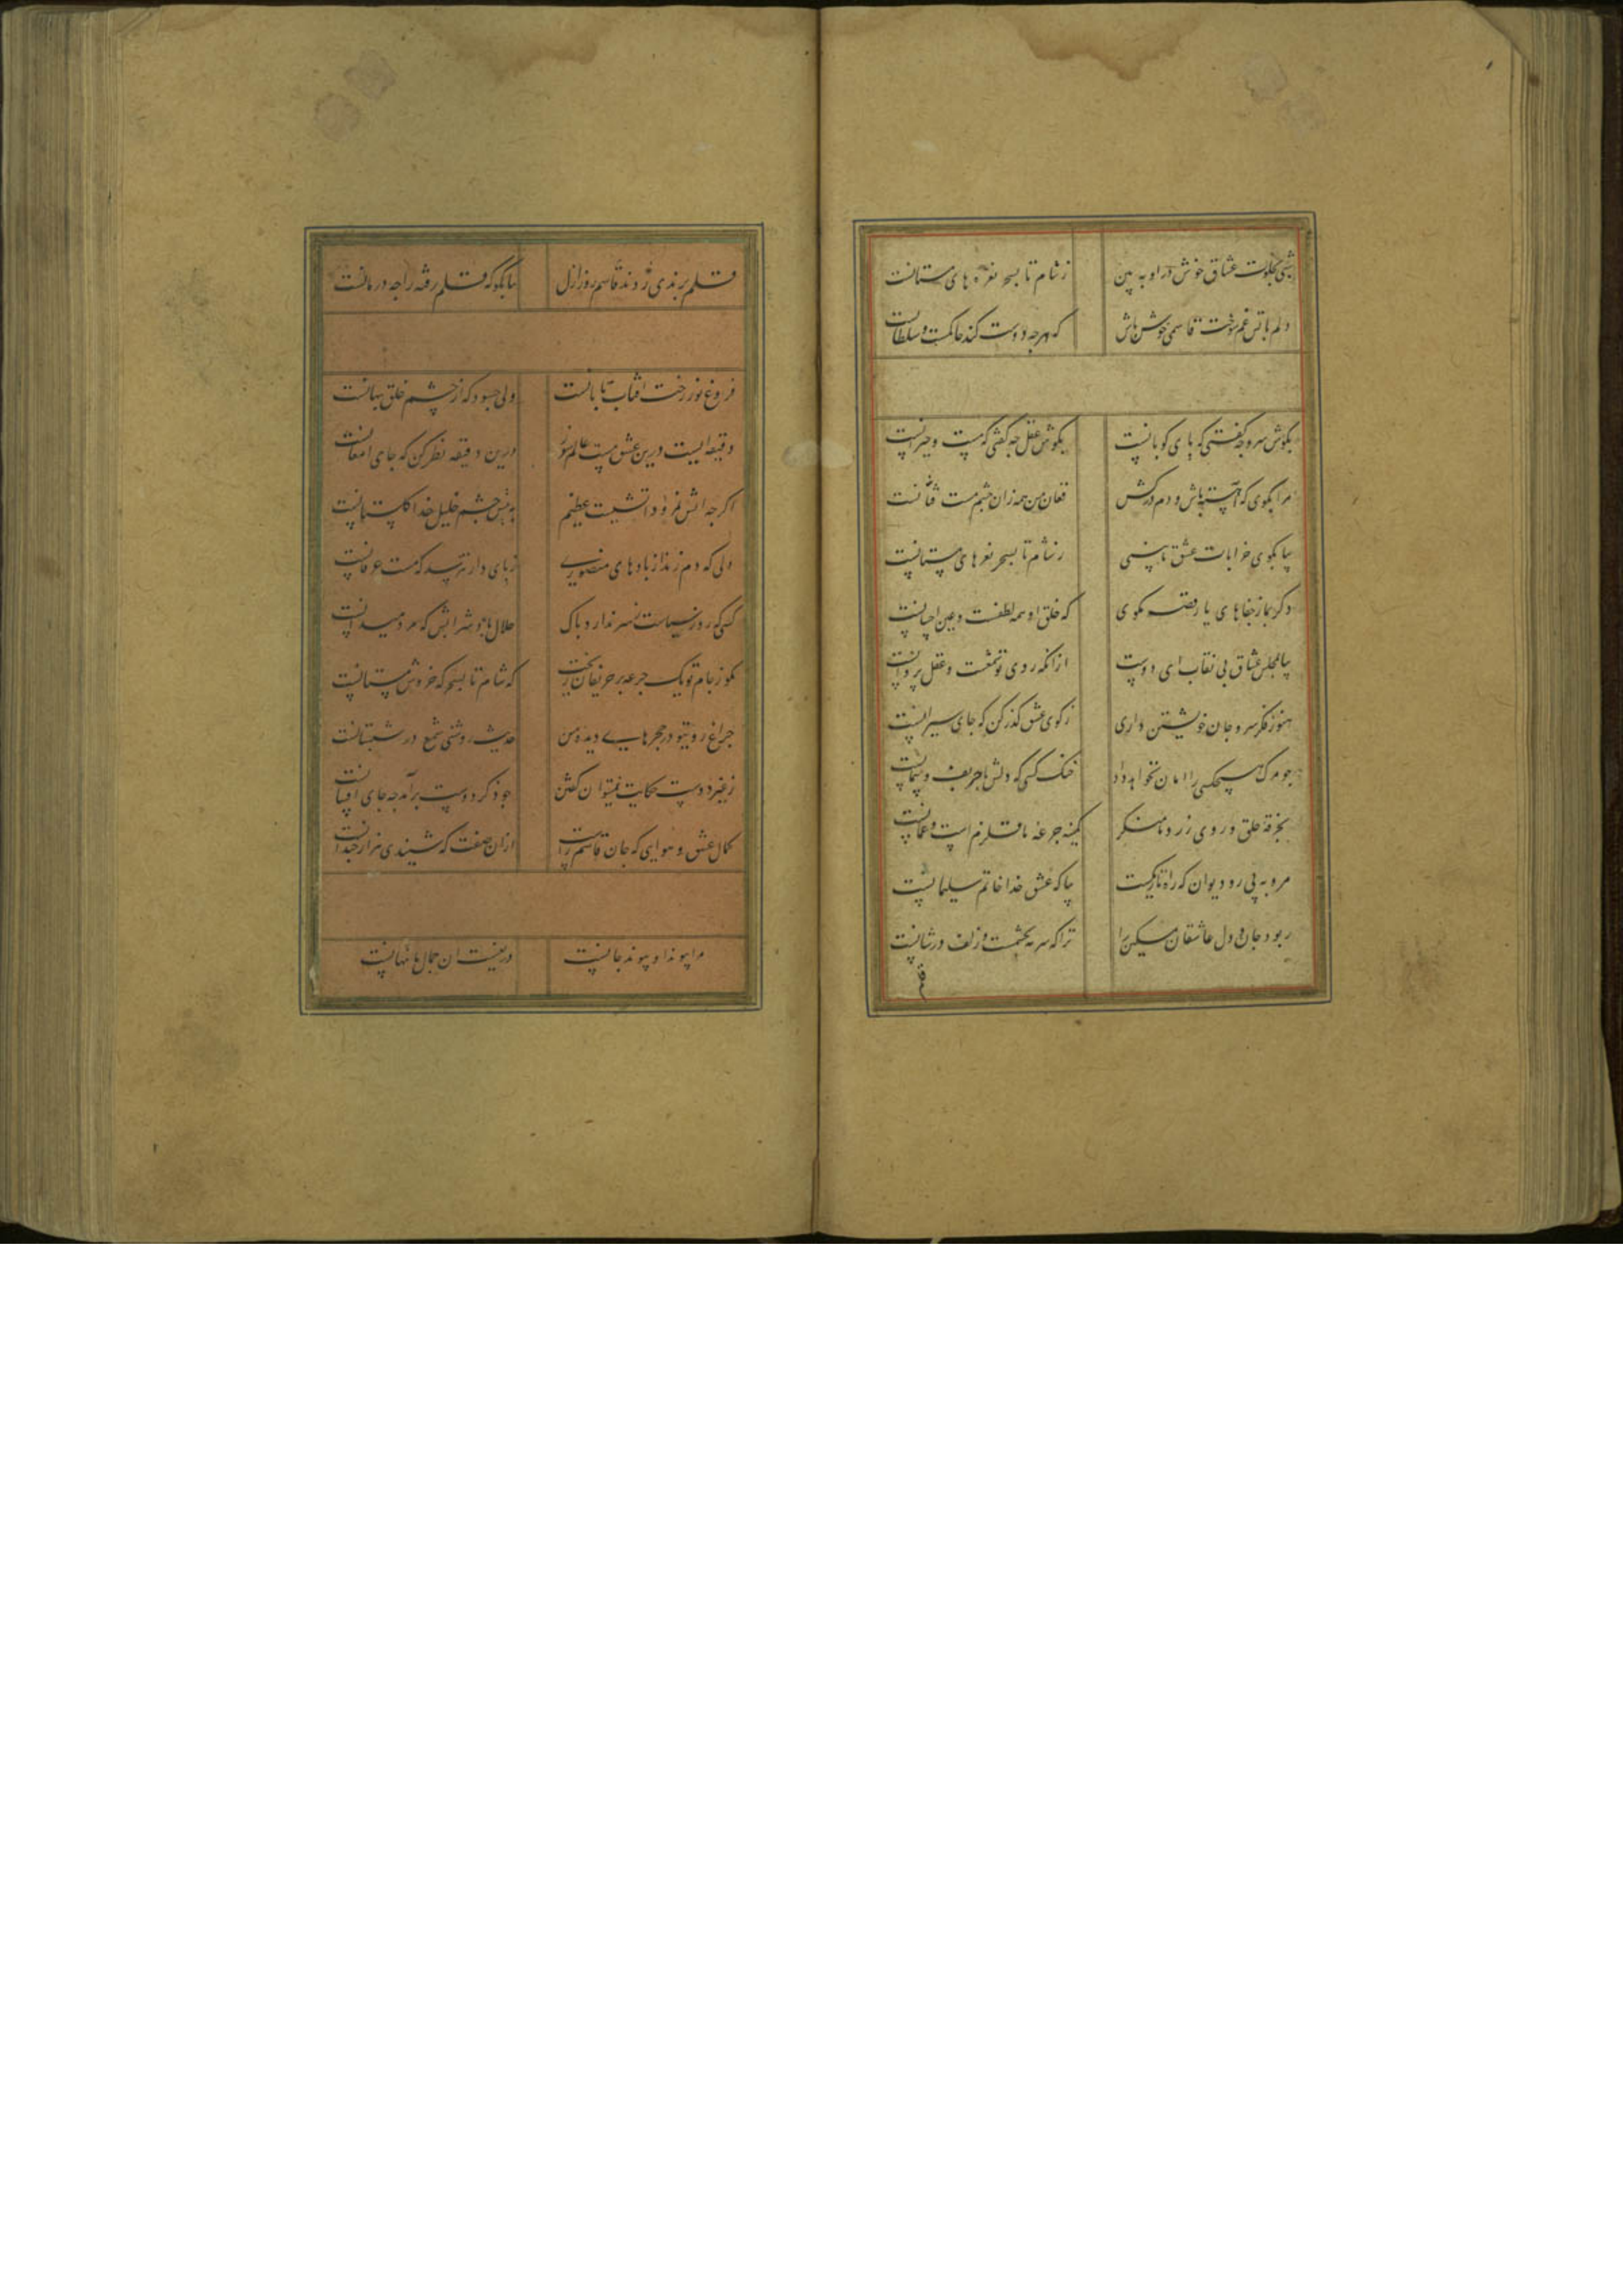 شبی بخلوت عشاق خوش درا و به بین ز شام تا بسحر نعره های مستانست
دلم باتش غم سوخت قاسمی خوش باش که هرچه دوست کند حاکمست و سلطانست
بکوش سرو چه گفتی که پای کوبانست بکوش عقل چه گفتی که مست و حیرانست
مرا بکوی که آهسته باش و دم درکش فغان من همه زان چشم مست فتانست
بیا بکوی خرابات عشق تا بینی ز شام تا بسحر نعرهای مستانست
دکر بما ز جفاهای یار قصه مکوی که خلق او همه لطفست و عین احسانست
بیا بمجلس عشاق بی نقاب ای دوست ازانکه روی تو شمعست و عقل پروانست
هنوز فکر سر و جان خویشتن داری ز کوی عشق گذر کن که جای سیرانست
چو مرک هیچکسی را امان نخواهد داد خنک کسی که دلش با حریف و پیمانست
بخرقهٔ خلق و روی زرد ما منکر کمینه جرعه ما قلزم است و عمانست
مرو به پی رو دیوان که راه تاریکست بیا که عشق خدا خاتم سلیمانست
ربود جان و دل عاشقان مسکین را ترا که سرمه بچشمست و زلف درشانست
قلم
قلم برندی زدند قاسم روز ازل بیا بکو که قلم رفته را چه درمانست
فروغ نور رخت افتاب تابانست ولی چسود که از چشم خلق پنهانست
دقیقه ایست درین عشق مست عالم سوز درین دقیقه نظر کن که جای امعانست
اکرچه اتش نمرود اتشیست عظیم به پیش چشم خلیل خدا کلستانست
دلی که دم زند از بادهای منصوری ز پای دار نترسد که مست عرفانست
کسی که روز سیاست ز سر ندارد باک حلال باد شرابش که مرد میدانست
مکو ز جام تو یک جرعه بر حریفان ریخت که شام تا بسحر که خروش مستانست
چراغ روی تو در حجرهای دیده من حدیث روشنی شمع در شبستانست
ز غیر دوست حکایت نمیتوان گفتن چو ذکر دوست برآمد چه جای افسانست
کمال عشق و هوایی که جان قاسم راست ازان صفت که شنیدی هزار چندانست
مرا پیوند او پیوند جانست دریغست ان جمال ما نهانست